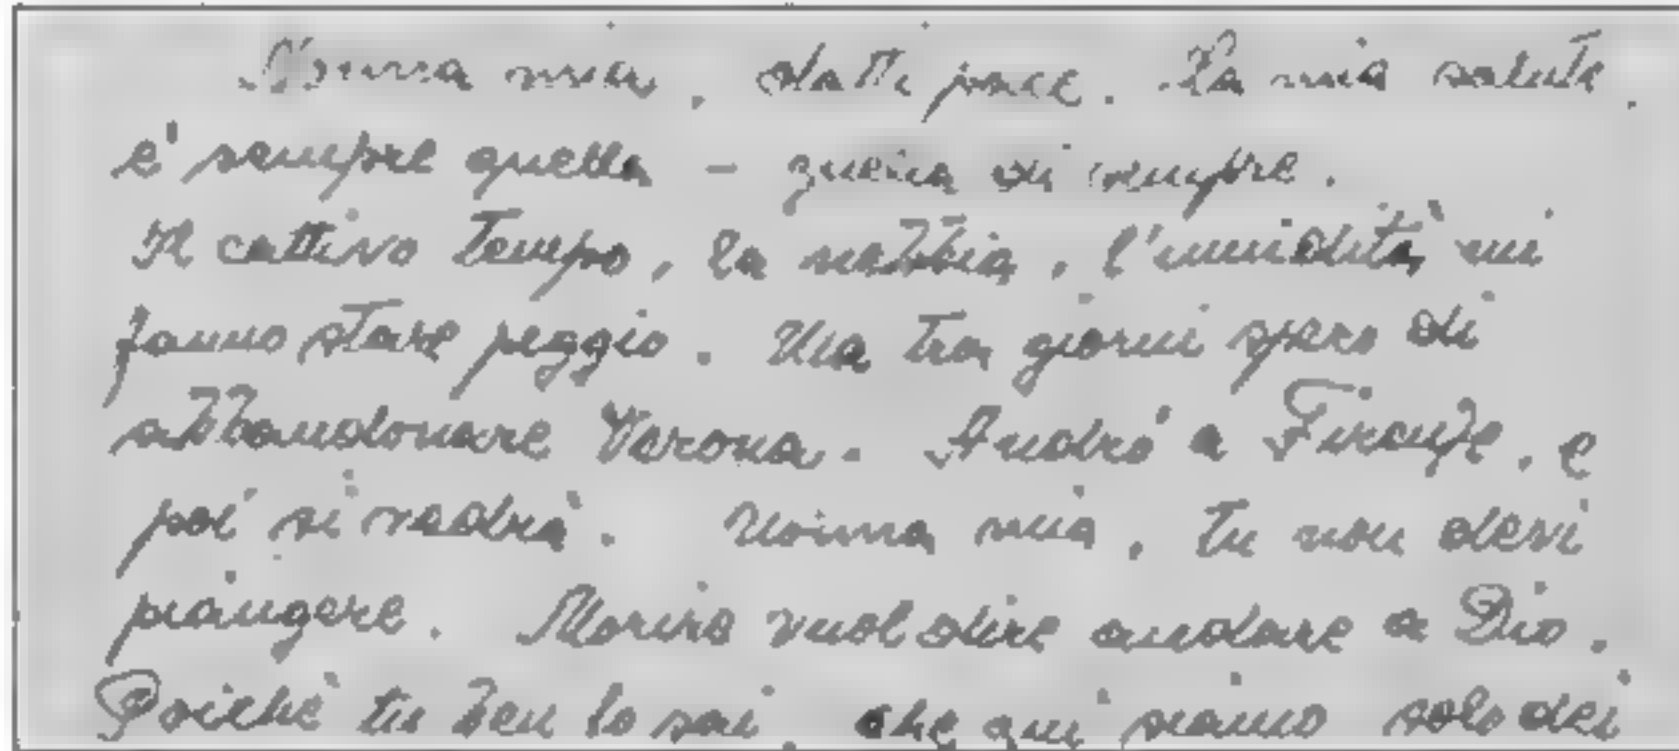 Norma mia, datti pace. La mia salute,
è sempre quella - quella di sempre.
Il cattivo tempo, la nebbia, l'umidità mi
fanno stare peggio. Ma tra giorni spero di
abbandonare Verona. Andrò a Firenze, e
poi si vedrà. Norma mia, tu non devi
piangere. Morire vuol dire andare a Dio.
Poichè tu ben lo sai, che qui siamo solo dei